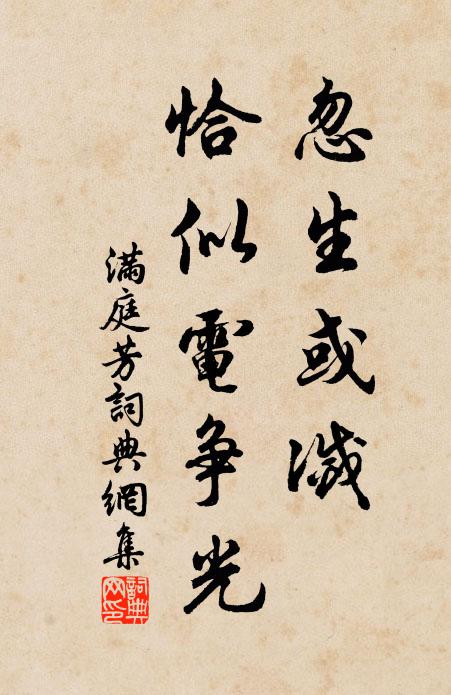 忽生或滅
恰似電爭光
滿庭芳詞典網集
詞典
网印